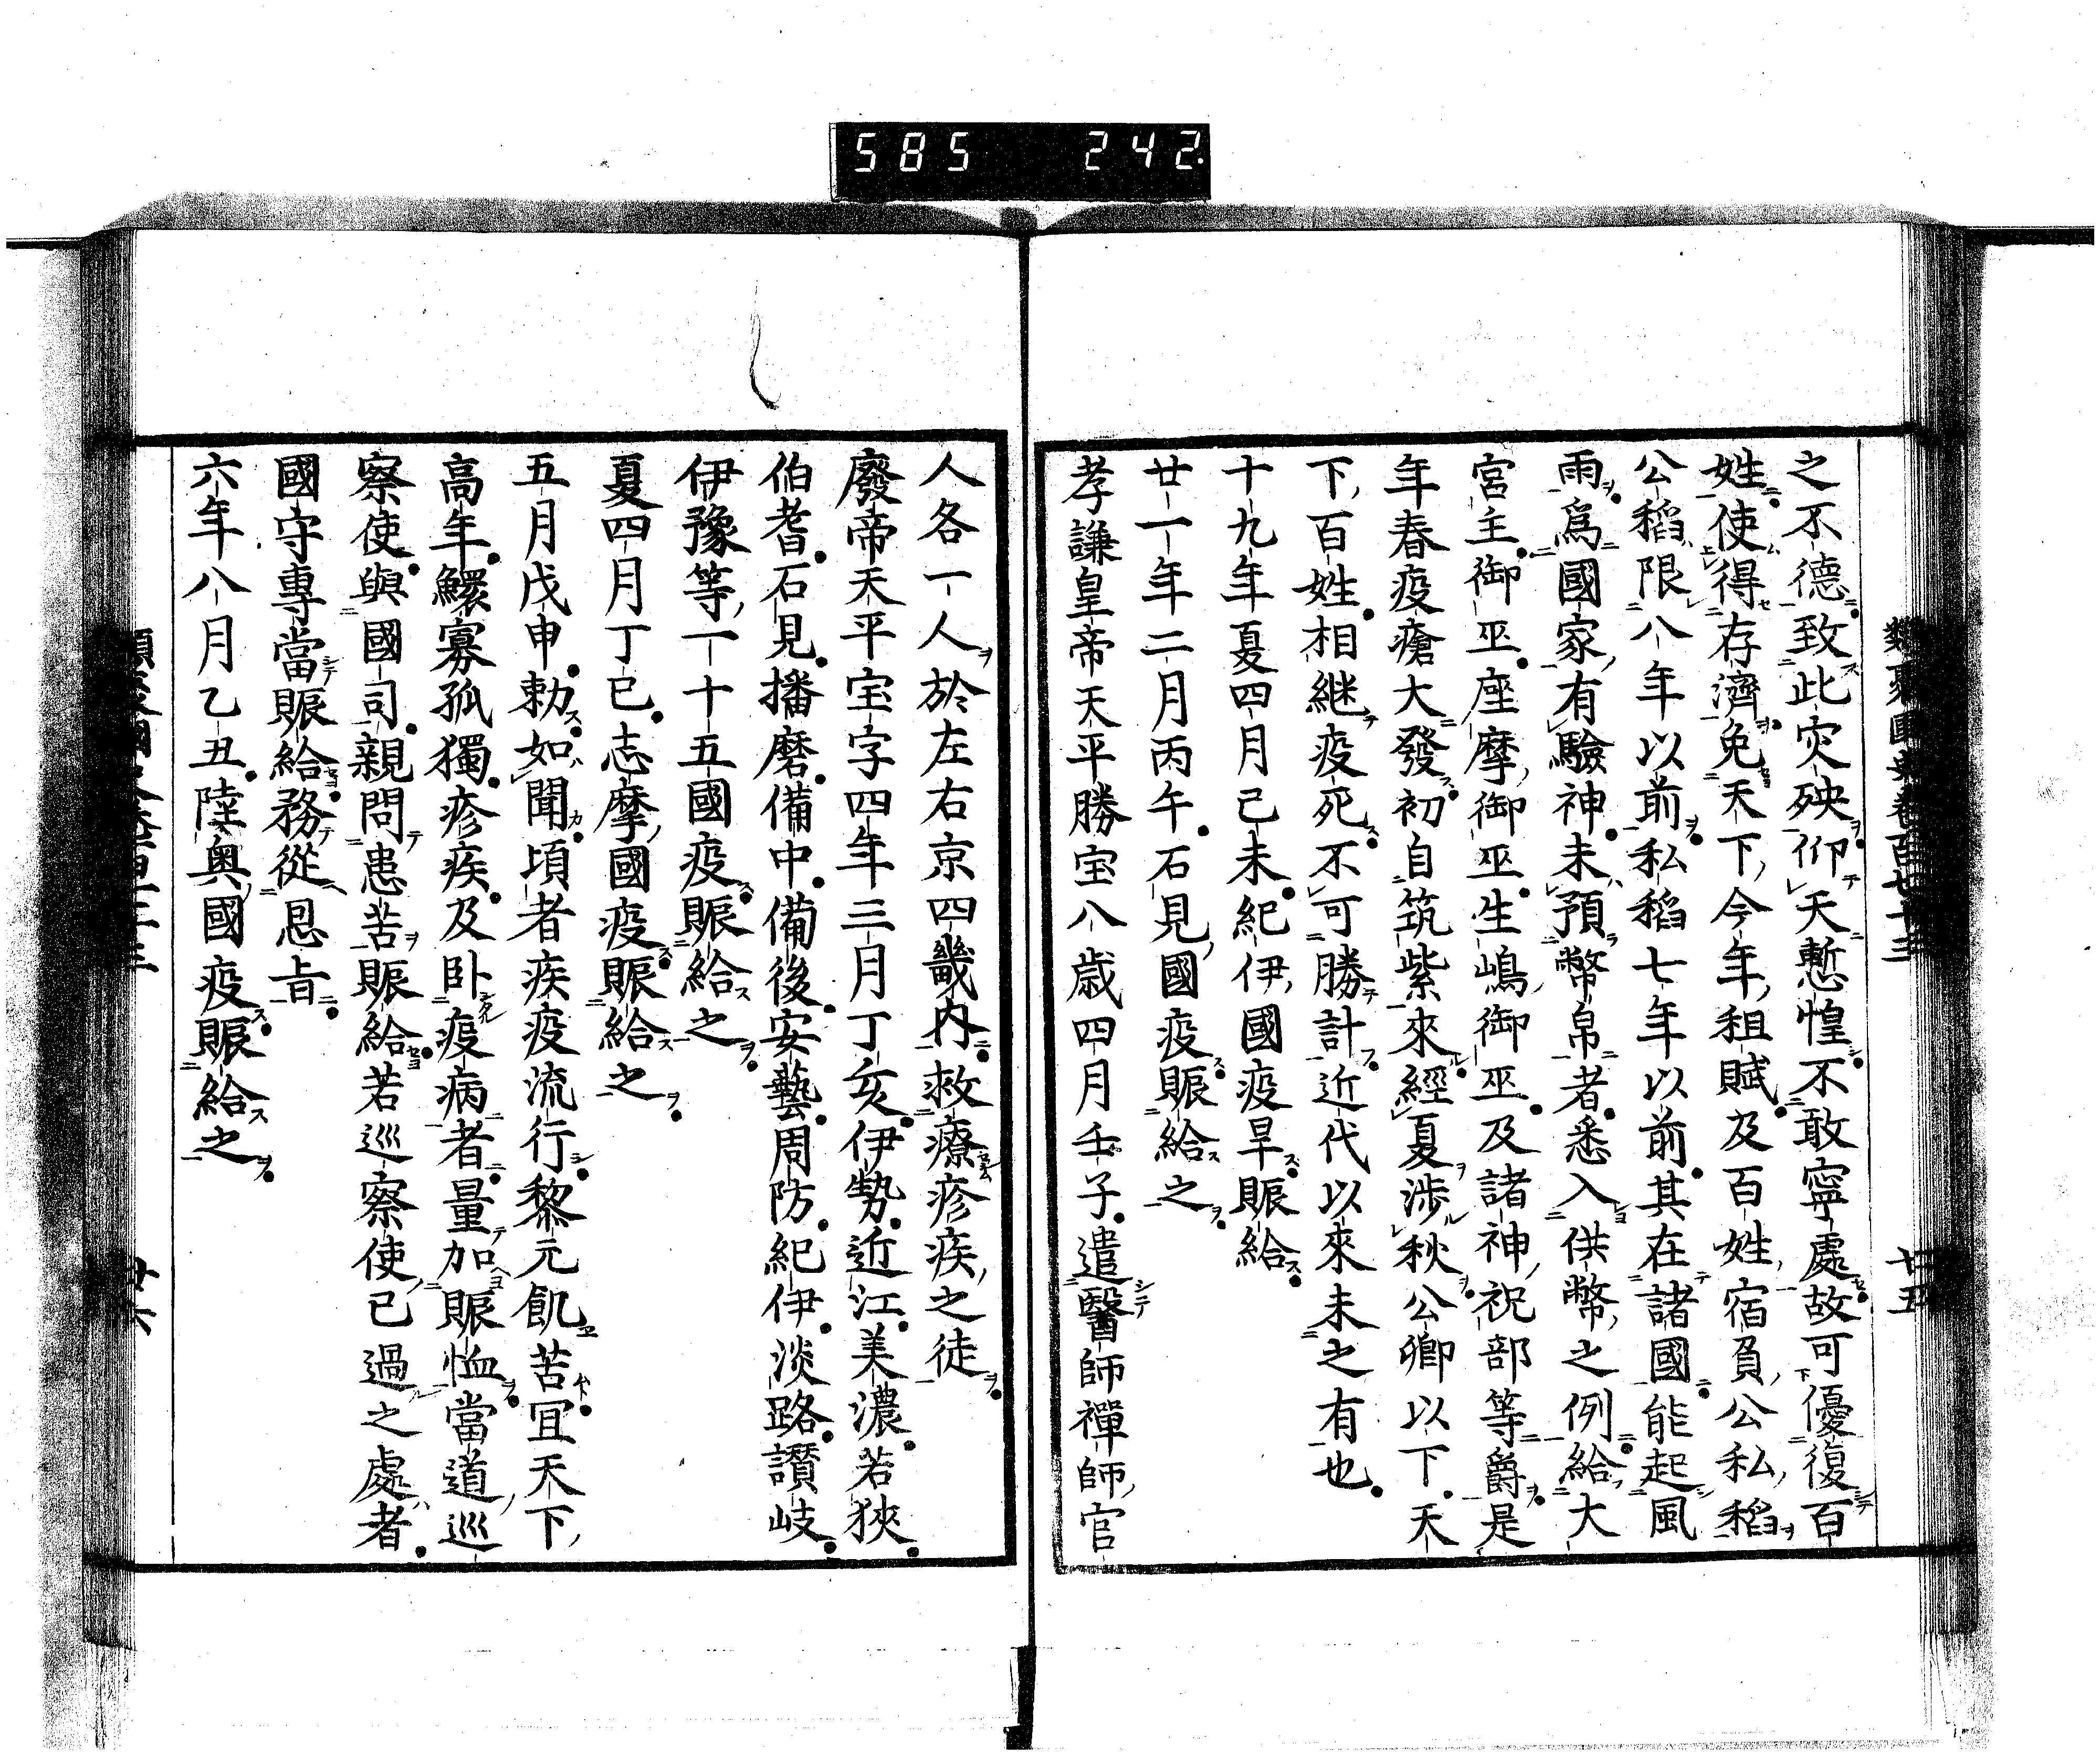 585 242
類聚國史卷百七十三 廿五
之不德致此灾殃仰天慙惶不敢寧處故可優復百
姓使得存濟免天下今年租賦及百姓宿負公私稻
公稻限八年以前私稻七年以前其在諸國能起風
雨爲國家有驗神未預幣帛者悉入供幣之例給大
宮主御巫座摩御巫生嶋御巫及諸神祝部等爵是
年春疫瘡大發初自筑紫來經夏涉秋公卿以下天
下百姓相継疫死不可勝計近代以來未之有也
十九年夏四月己未紀伊國疫旱賑給
廿一年二月丙午石見國疫賑給之
孝謙皇帝天平勝宝八歳四月壬子遣醫師禪師官
人各一人於左右京四畿内救療疹疾之徒
廢帝天平宝字四年三月丁亥伊勢近江美濃若狹
伯耆石見播磨備中備後安藝周防紀伊淡路讃岐
伊豫等一十五國疫賑給之
夏四月丁巳志摩國疫賑給之
五月戊申勅如聞頃者疾疫流行黎元飢苦宜天下
高年鰥寡孤獨疹疾及卧疫病者量加賑恤當道巡
察使與國司親問患苦賑給若巡察使已過之處者
國守專當賑給務從恩旨
六年八月乙丑陸奥國疫賑給之